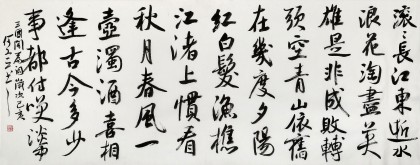 滚〻長江東逝水
浪花淘盡英
雄是非成敗轉
頭空青山依舊
在幾度夕陽
紅白髮漁樵
江渚上慣看
秋月春風一
壺濁酒喜相
逢古今多少
事都付笑談
三國開篇詞歲次己亥